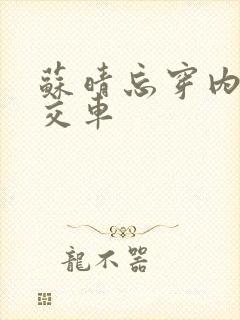 蘇晴忘穿内
交車
龍不器